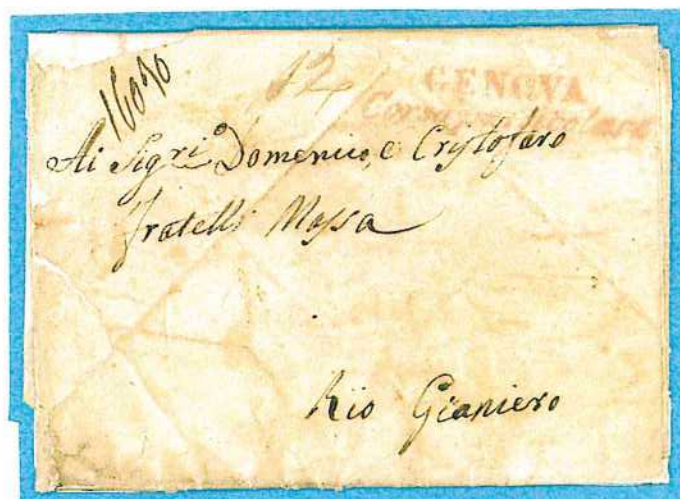 16070
12
GENOVA
Ai Sigri. Domenico, e Cristofaro
fratelli Massa
Rio Gianiero